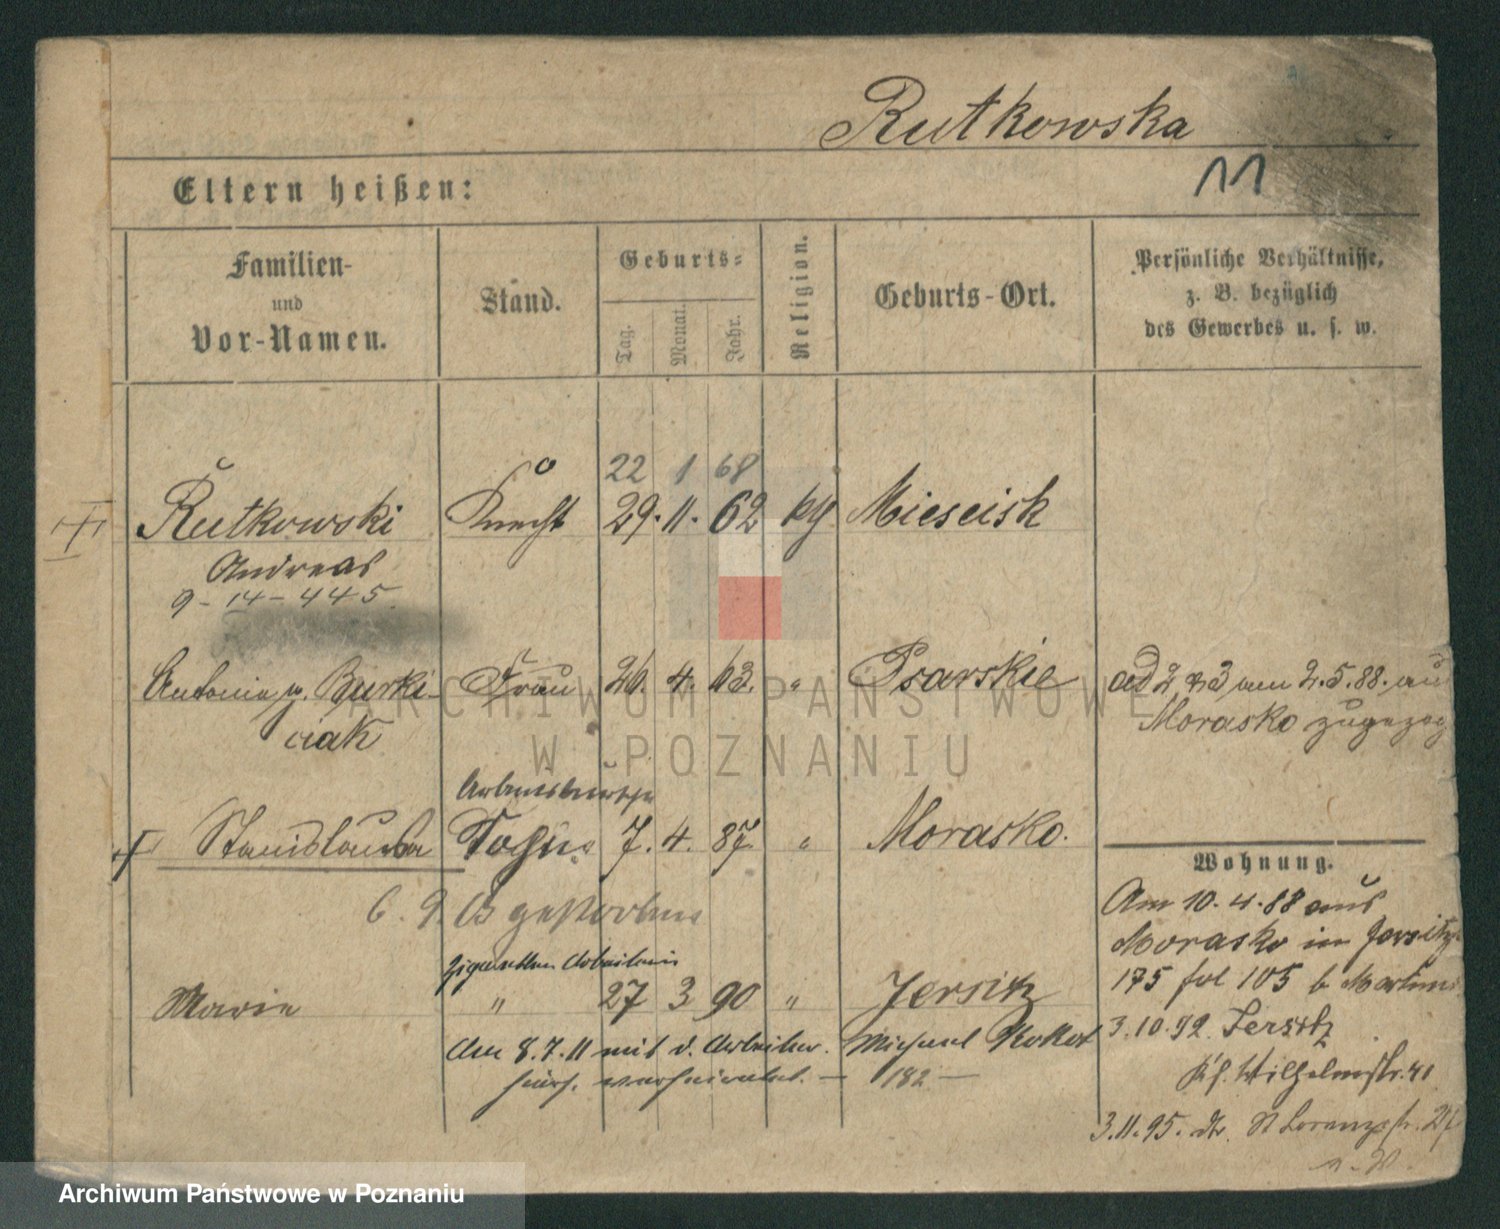 Rutkowska
11
Eltern heißen:
Familien-
und
Vor-Namen.
Stand.
Geburts-
Tag.
Monat.
Jahr.
Religion.
Geburts-Ort.
Persönliche Verhältnisse,
z. B. bezüglich
des Gewerbes u. s. w.
22 1 68
Rutkowski Knecht 29. 11. 62 kth Miescisk
Andreas
9-14-445
Antonie g. Burki- Frau 26. 4. 63. " Psarskie
ciak
ad 2 & 3 am 2.5.88. aus
Morasko zugezog
Arbeitsbursche
Stanislaus 7. 4. 87. " Morasko.
6. 9. gestorben
Wohnung.
Am 10.4.88 aus
Morasko in Jersitz
175 fol 105 b
Cigaretten Arbeiterin
Marie " 27 3 90 " Jersitz
3.10.92. Jersitz
Am 8.7.11 mit d. Arbeiter Michael Kokot
hier verheiratet. — 182 —
Wilhelmstr. 41
3.11.95. St Lorenzstr.
ARCHIWUM PAŃSTWOWE
W POZNANIU
Archiwum Państwowe w Poznaniu